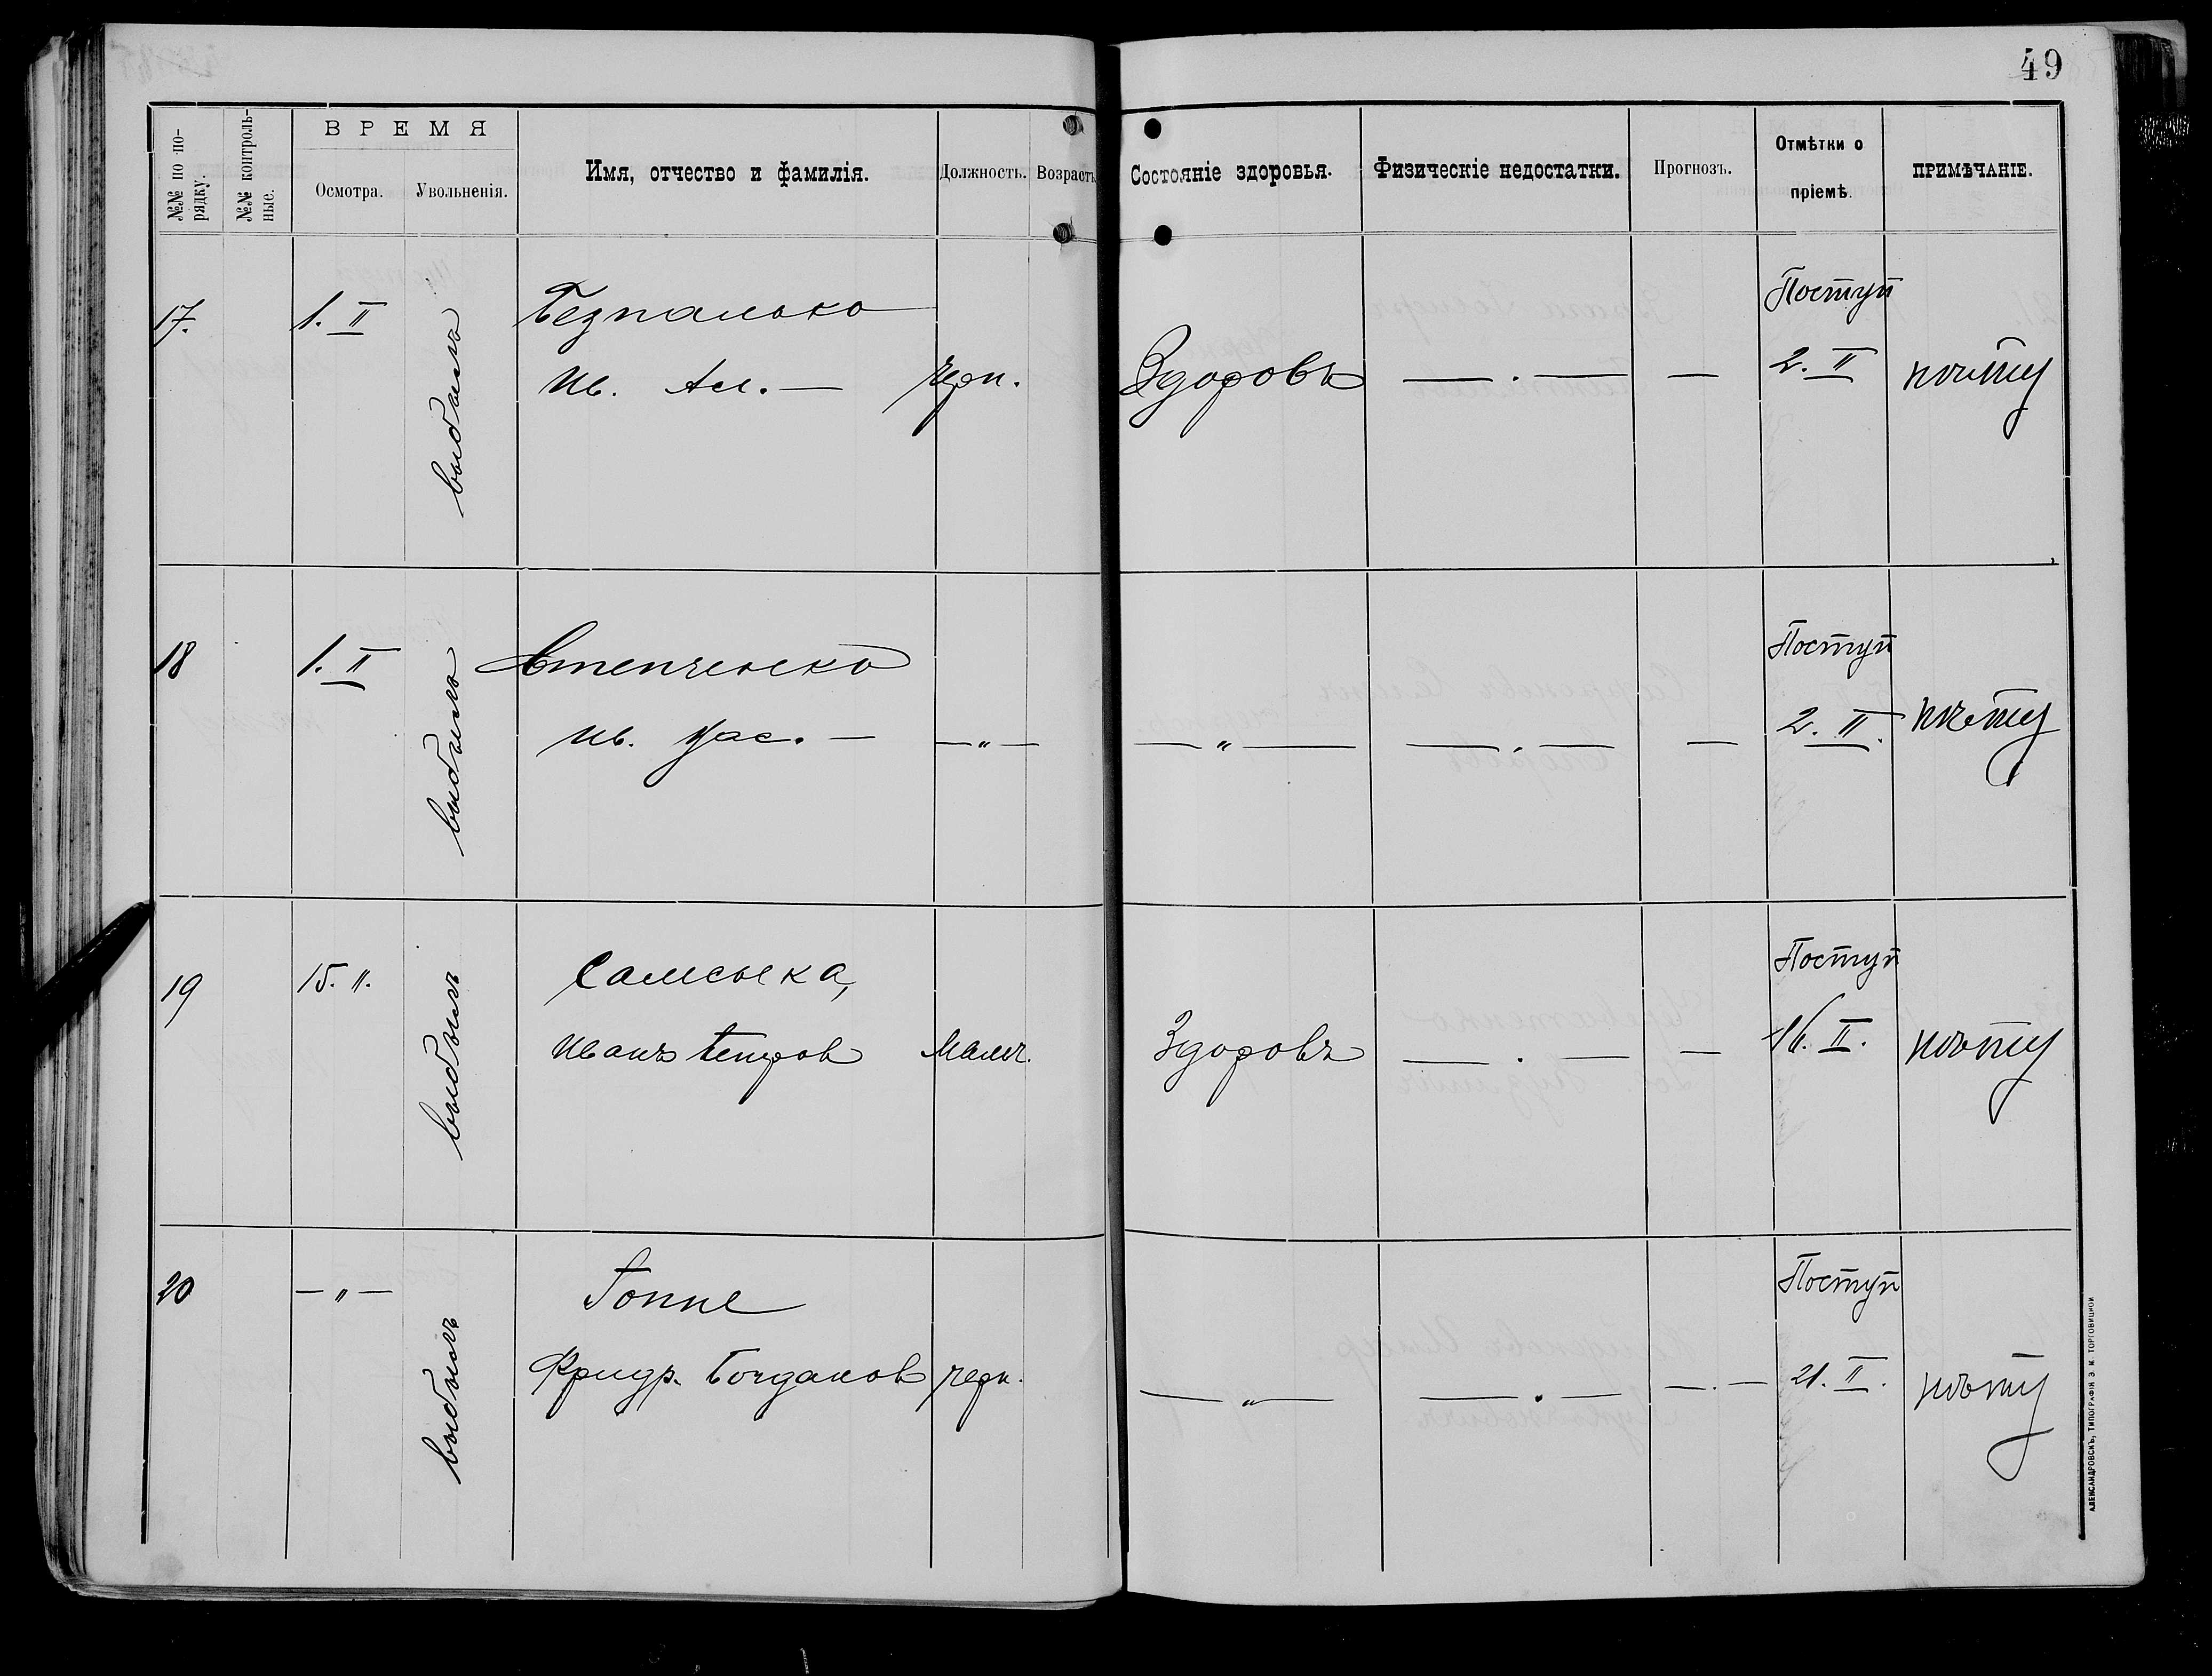 49
№№ по по-
рядку.
№№ контроль-
ные.
ВРЕМЯ
Осмотра.
Увольненія.
Имя, отчество и фамилія.
Должность.
Возрастъ
Состояніе здоровья.
Физическіе недостатки.
Прогнозъ.
Отмѣтки о
пріемѣ.
ПРИМѢЧАНІЕ.
17.
1. II
выбылъ
Безпалько
Ив. Ал. —
черн.
Здоровъ
— . —
—
Поступ
2. II
18
1. II
выбылъ
Ив. —
— " —
— " —
— . —
—
Поступ
2. II.
19
15. II.
выбылъ
Самсыка,
Иванъ Петров
Мальч.
Здоровъ
— . —
—
Поступ
16. II.
20
— " —
выбылъ
Гоппе
Фридр. Богданов
черн.
— " —
— . —
— . —
Поступ
21. II.
АЛЕКСАНДРОВСКЪ, ТИПОГРАФІЯ Э. М. ТОРГОВИЦКОЙ